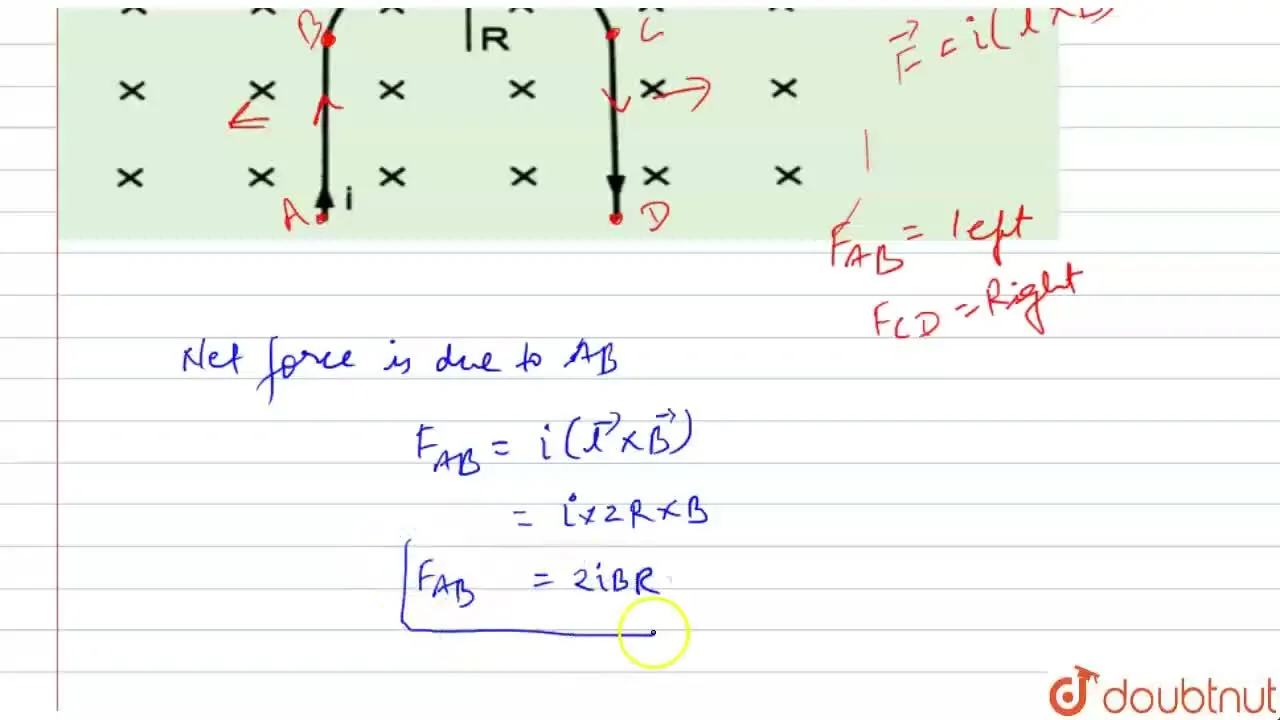 B R C F⃗ = i(l×B)
A i D
F_AB = left
F_CD = Right
Net force is due to AB
F_AB = i(l⃗×B⃗)
= i×2R×B
F_AB = 2iBR
doubtnut